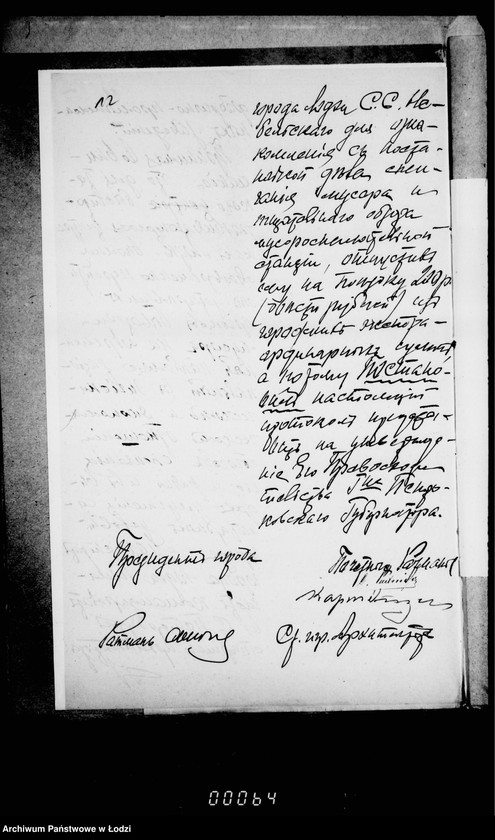 12
города Лодзи С. С. Не-
бельского для озна-
комленія съ поста-
новкой дѣла сжи-
ганія мусора и
тщательнаго обзора
мусоросжигательной
станціи, отпустивъ
ему на поѣздку 200 р.
(двѣсти рублей) изъ
городскихъ экстра-
ординарныхъ суммъ,
а потому постано-
вили настоящій
протоколъ предста-
вить на утвержде-
ніе Его Превосходи-
тельства Гна Петро-
ковскаго Губернатора.
Президентъ города
Почетный Ратманъ
Ратманъ
Ст. гор. Архитекторъ
00064
Archiwum Państwowe w Łodzi